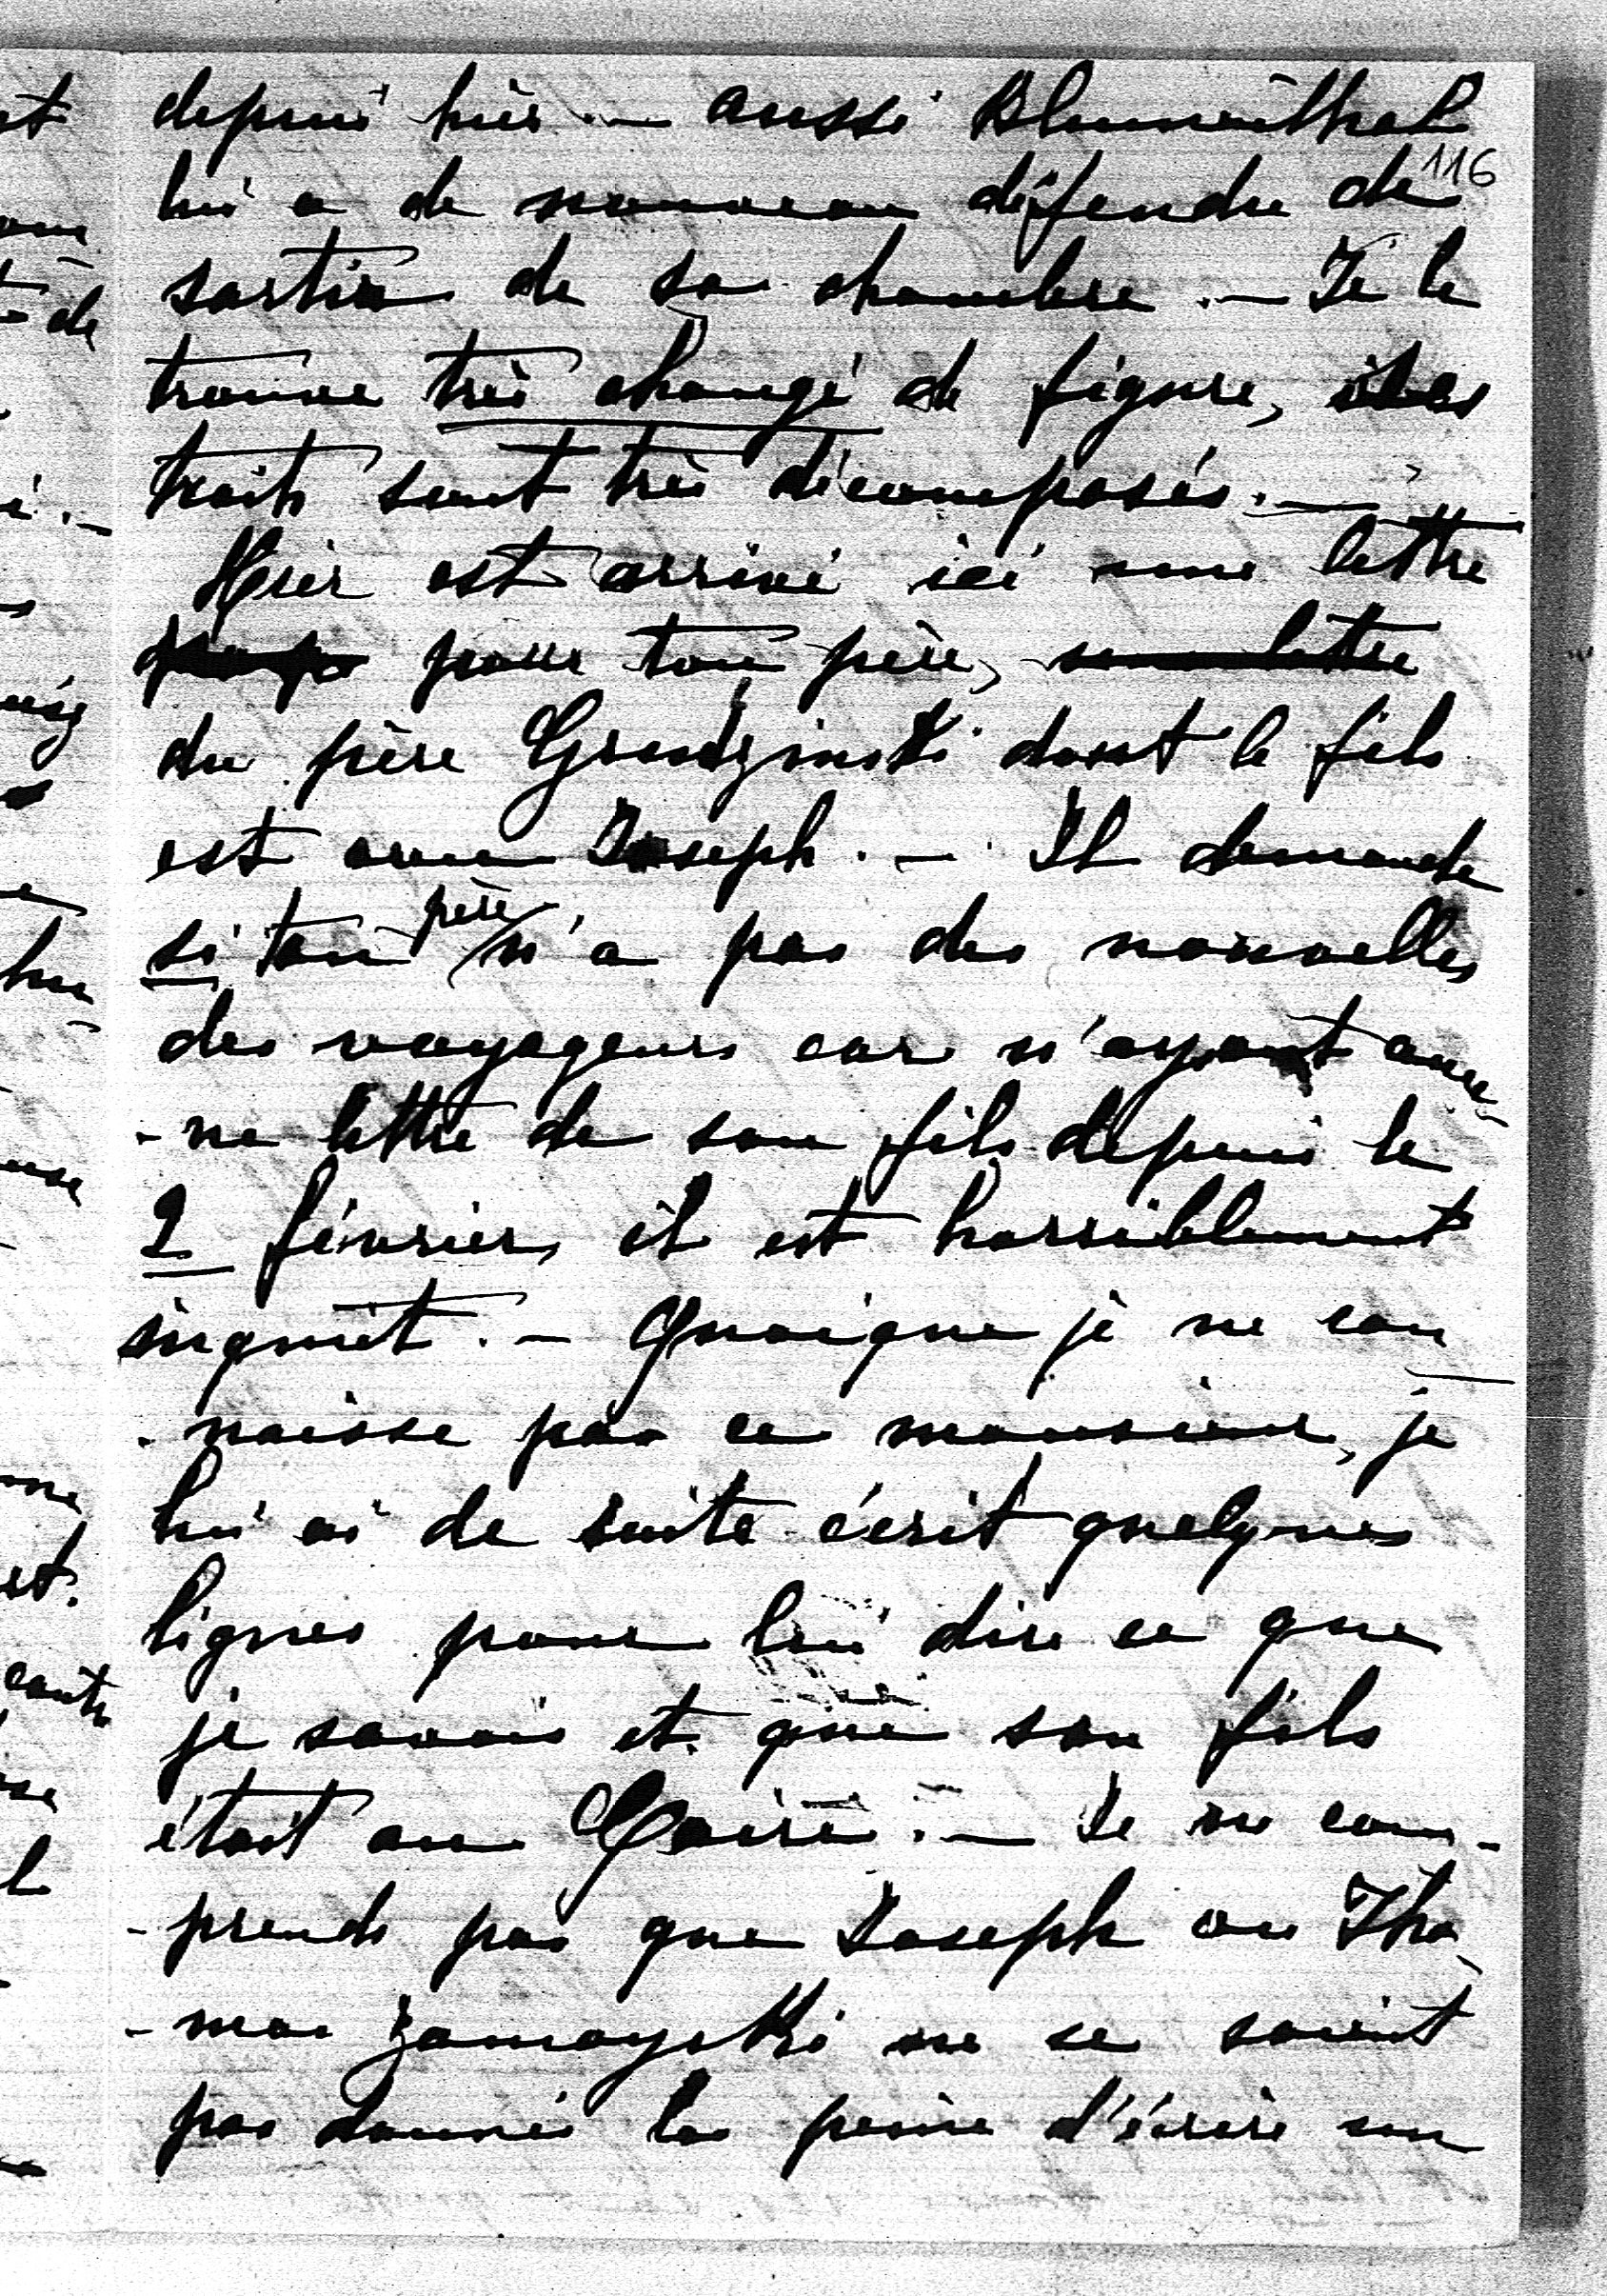 depuis hier. — aussi Blumenthal
116
lui a de nouveau défendu de
sortir de sa chambre. — Je le
trouve très changé de figure, ses
traits sont très décomposés. —
Hier est arrivé ici une lettre
pour ton père,
du père Grudzinski dont le fils
est avec Joseph. — Il demande
si ton père n'a pas des nouvelles
des voyageurs car n'ayant aucu-
-ne lettre de son fils depuis le
2 février, il est horriblement
inquiet. — Quoique je ne con
-naisse pas ce monsieur, je
lui ai de suite écrit quelques
lignes pour lui dire ce que
je savais et que son fils
était au Caire. — Je ne com-
-prends pas que Joseph ou Tho-
-mas Zamoyski ne se soient
pas donnés la peine d'écrire un